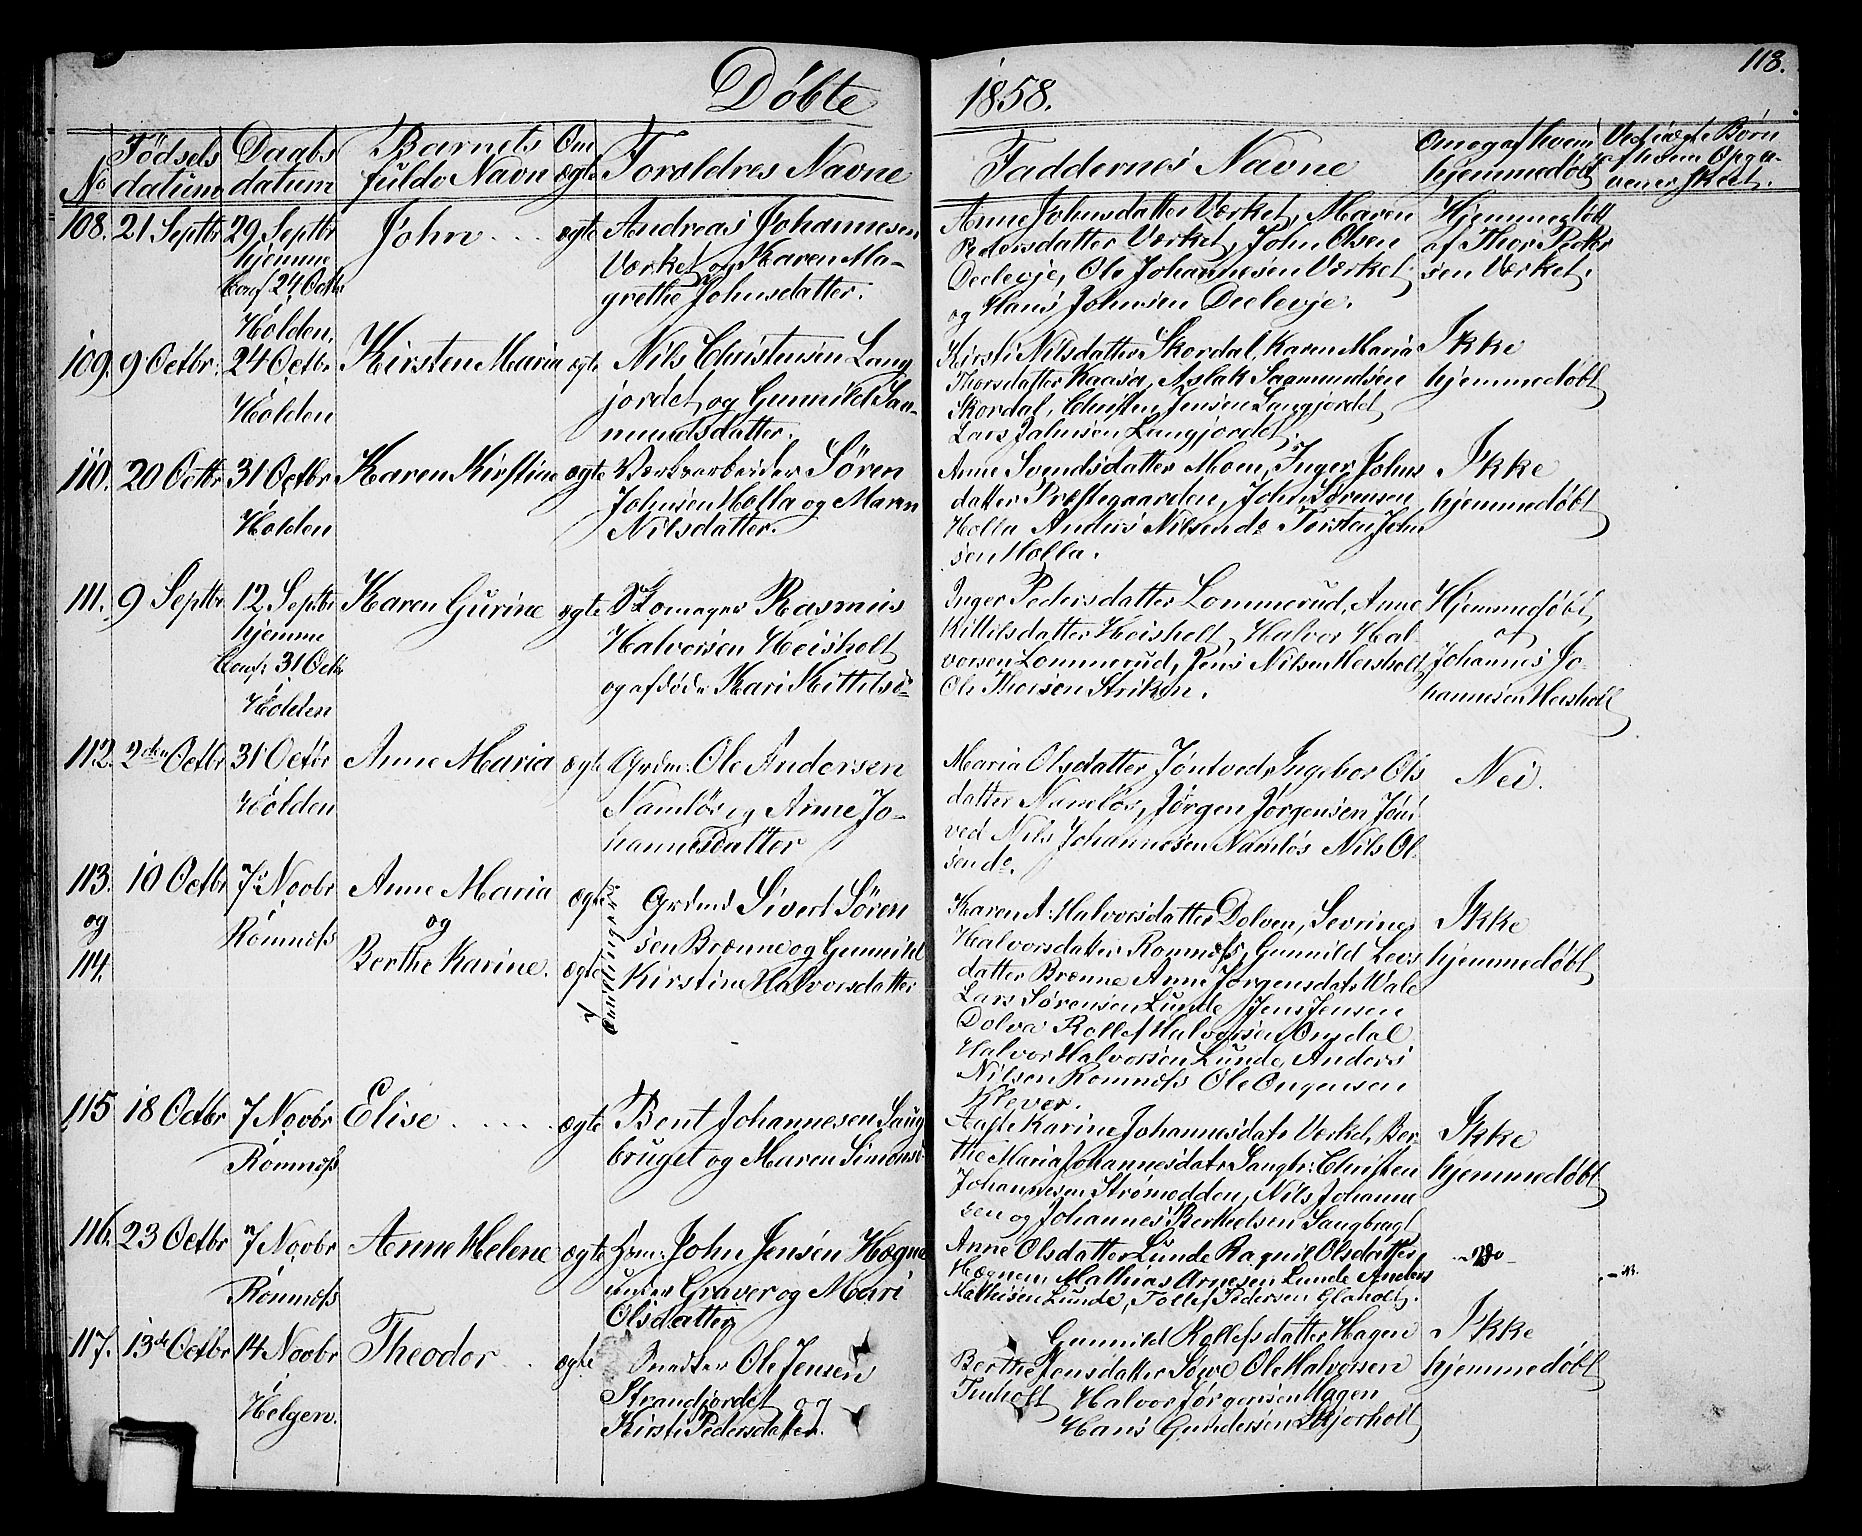 118.
Döbte
1858.
No
Födsels
datum
Daabs
datum
Barnets
fulde Navn
Om
ægte
Forældres Navne
Faddernes Navne
hjemmedøbt
108. 21 Septbr
29 Septbr
hjemme
Conf. 24 Octbr
Holden.
John
ægte
Andreas Johannesen
Værket og Karen Ma-
grethe Johnsdatter.
Anne Johnsdatter Værket, Maren
Pedersdatter Værket, John Olsen
Ole Johannesen Værket
og Hans Johnsen
Hjemmedøbt
af Thor Peder
sen Værket.
109. 9 Octbr.
24 Octbr
Holden
Kirsten Maria
ægte
Nils Christensen Lang
jordet og Gunnild Saa-
mundsdatter.
Kirsti Nilsdatter Skordal, Karen Maria
Thorsdatter Kaasa, Aslak Saamundsen
Skordal, Christen Jensen Langjordet
Lars Johnsen Langjordet.
Ikke
hjemmedøbt
110. 20 Octbr
31 Octbr
Holden
Karen Kirstine
ægte
Værksarbeider Sören
Johnsen Holla og Maren
Nilsdatter.
Anne Svendsdatter Moen, Inger Johns
datter Præstegaarden, John Sørensen
Holla Anders Nilsen do Torsten John
sen Holla.
Ikke
hjemmedøbt
111. 9 Septbr
12 Septbr
hjemme
Conf. 31 Octbr
Holden
Karen Gurine
ægte
Skomager Rasmus
Halvorsen Heisholt
og afdøde Kari Kittilsd.
Inger Pedersdatter Lommerud, Anne
Kittilsdatter Heisholt, Halvor Hal-
vorsen Lommerud, Jens Nilsen Heisholt
Ole Thorsen Striken.
Hjemmedøbt
af
Johannes Jo-
hannesen Heisholt
112. 2den Octbr
31 Octbr
Holden
Anne Maria
ægte
Grdm: Ole Andersen
Namlös og Anne Jo-
hannesdatter
Maria Olsdatter Jöntvedt, Ingebor Ols
datter Namlös, Jørgen Jørgensen Jönt
ved Nils Johannesen Namlös Nils Ol-
sen do.
Nei.
113.
og
114.
10 Octbr
7 Novbr
Romnæs
Anne Maria
og
Berthe Karine.
ægte
ægte
Tvillinger
Grdmd Sivert Sören
sen Brænne og Gunnild
Kirstine Halvorsdatter
Karen A: Halvorsdatter Dolven, Sevrine
Halvorsdatter Romnæs, Gunnild Lars
datter Brænne Anne Jørgensdatr Wale
Lars Sørensen Lunde Jens Jensen
Dolva Rollef Halvorsen Omdal
Halvor Halvorsen Lunde, Anders
Nilsen Romnæs Ole Ungensen
Klever.
Ikke
hjemmedøbt
115 18 Octbr
7 Novbr
Romnæs
Elise
ægte
Bent Johannesen Saug
bruget og Maren Simonsd
Aaste Karine Johannesdatr Værket, Ber-
the Maria Johannesdatr Saugbr: Christen
Johannesen Strømodden, Nils Johanne
sen og Johannes Berthelsen Saugbrugt
Ikke
hjemmedøbt
116. 23 Octbr
7 Novbr
Romnæs
Anne Helene
ægte
Hsm: John Jensen Hægne
under Graver og Mari
Olsdatter
Anne Olsdatter Lunde Ragnil Olsdatter
Hægnen, Mathias Arnesen Lunde Anders
Mathisen Lunde, Tollef Pedersen Glaholt.
do
117. 13de Octbr
14 Novbr
Helgen.
Theodor
ægte
Ole Jensen
Strandjordet og
Kirsti Pedersdatter.
Gunnild Rollefsdatter Hagen
Berthe Jensdatter Søve Ole Halvorsen
Tinholt Halvor Jørgensen Hagen
Hans Gundersen Skjorholt
Ikke
hjemmedøbt